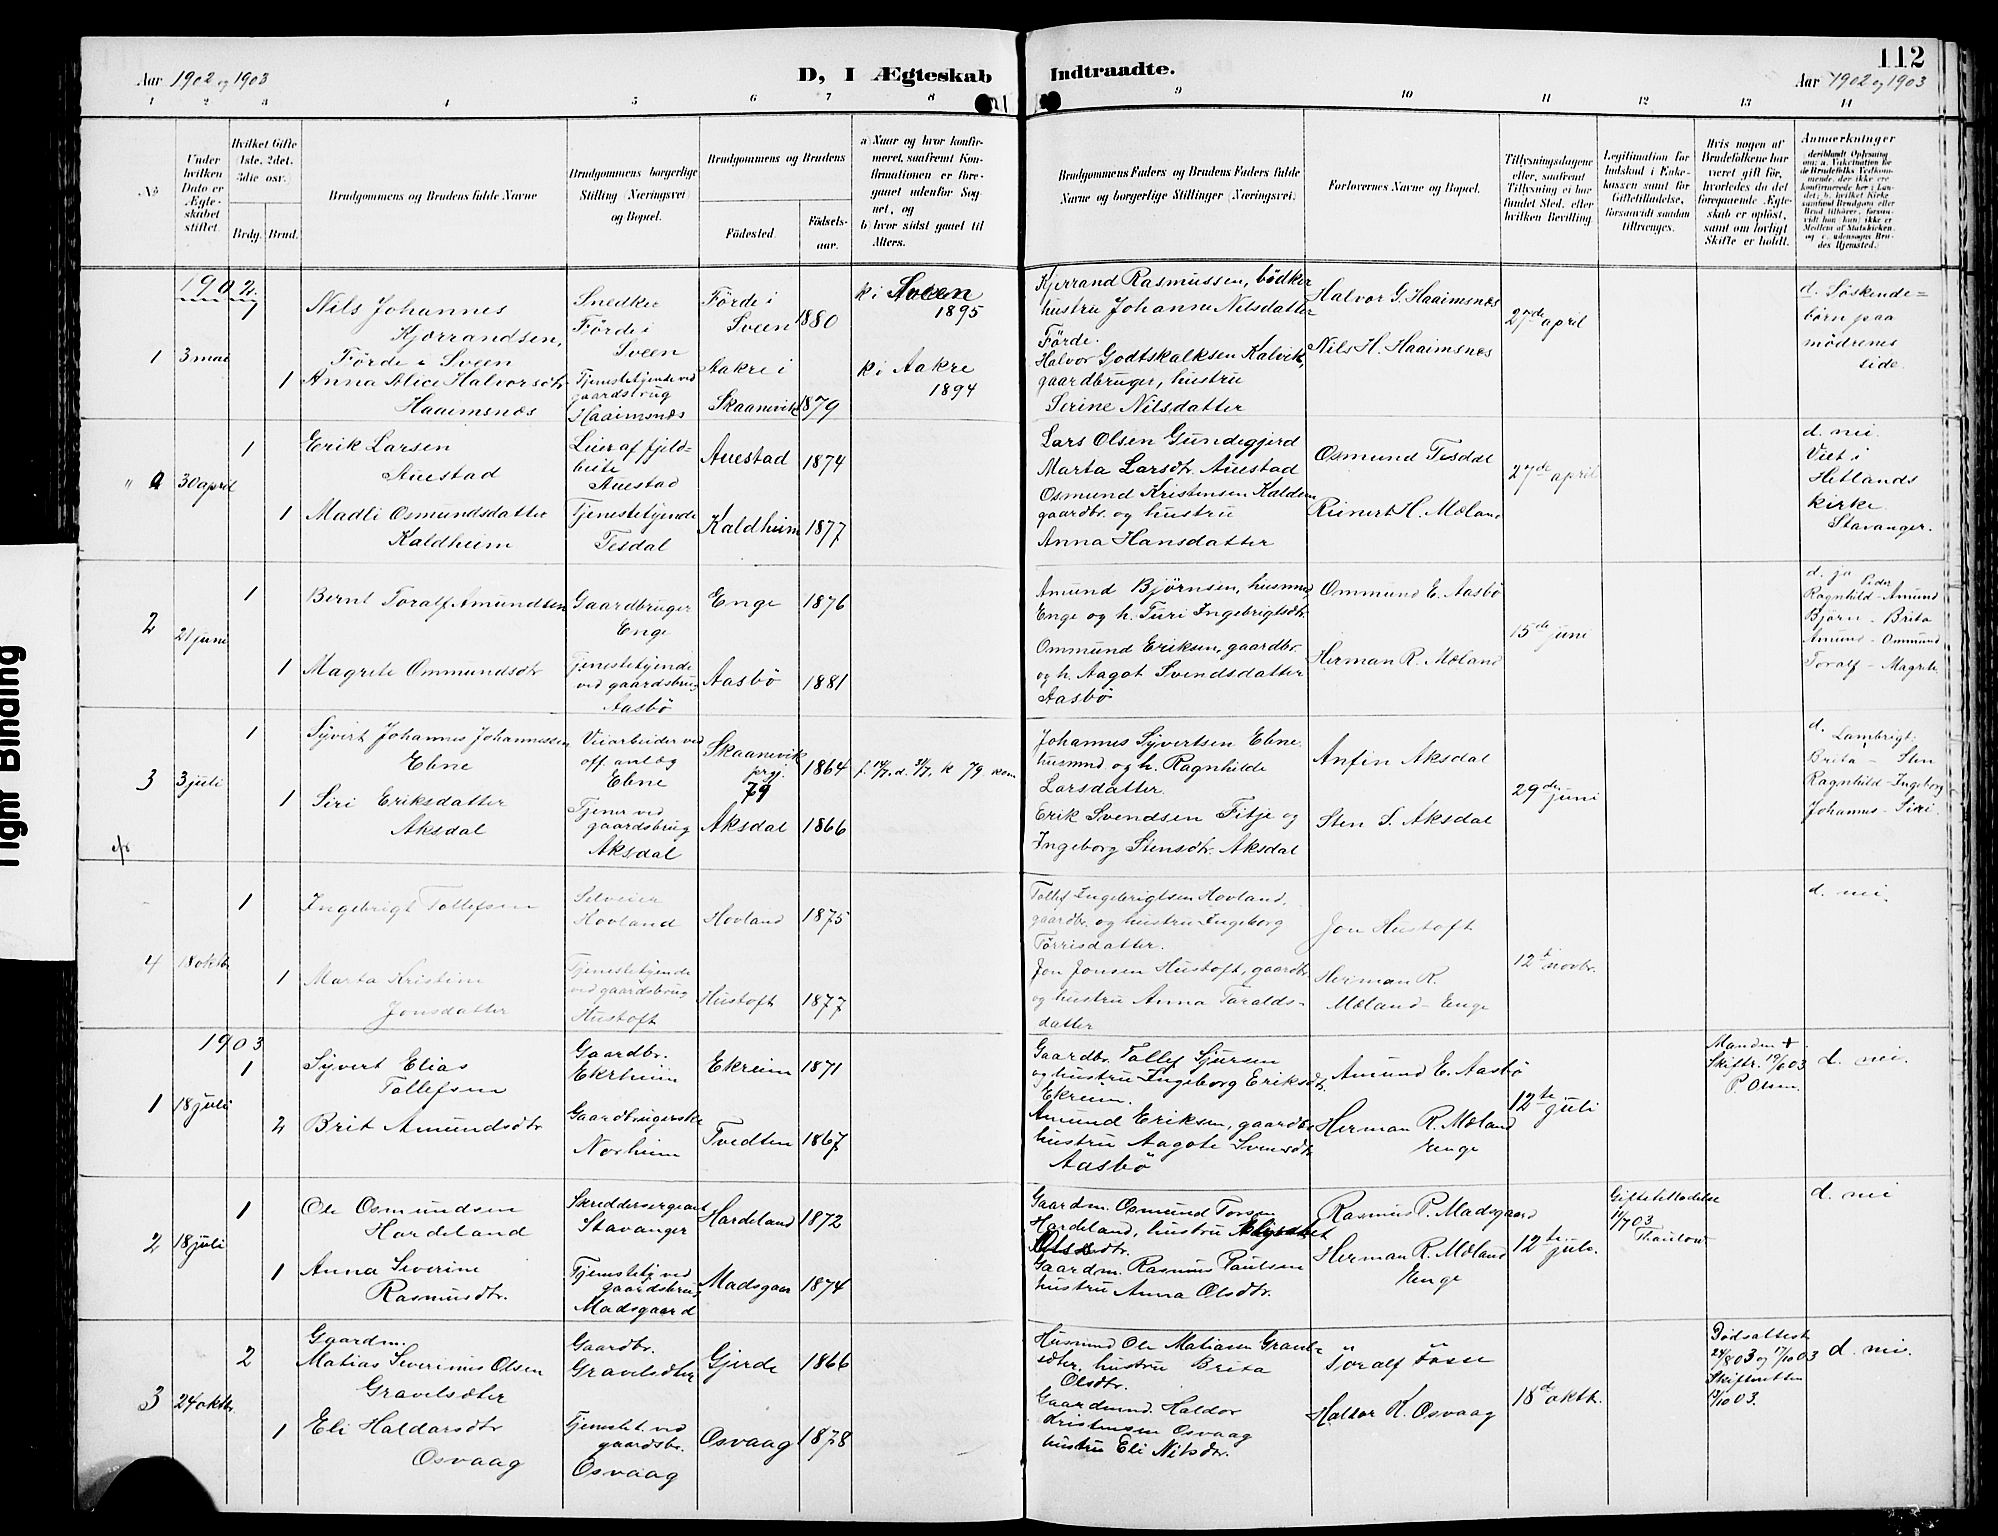 112
Aar 1902 og 1903
D, I Ægteskab Indtraadte.
Aar 1902 og 1903
1 2 3 4 5 6 7 8 9 10 11 12 13 14
No
Under hvilken Dato er Ægteskabet stiftet.
Hvilket Gifte 1ste, 2det, 3die osv.
Brdg. Brud.
Brudgommens og Brudens fulde Navne
Brudgommens borgerlige Stilling (Næringsvei) og Bopæl.
Brudgommens og Brudens
Fødested.
Fødselsaar.
a) Naar og hvor konfirmeret, saafremt Konfirmationen er foregaaet udenfor Sognet, og
b) hvor sidst gaaet til Alters.
Brudgommens Faders og Brudens Faders fulde Navne og borgerlige Stillinger (Næringsvei.)
Forlovernes Navne og Bopæl.
Tillysningsdagene eller, saafremt Tillysning ei har fundet Sted, efter hvilken Bevilling.
Legitimation for Indskud i Enkekassen samt for Giftetilladelse, forsaavidt saadan tiltrænges.
Hvis nogen af Brudefolkene har været gift før, hvorledes da det foregaaende Ægteskab er opløst, samt om lovligt Skifte er holdt.
Anmærkninger
1902.
1
3 mai
1
Nils Johannes
Kjærrandsen,
Förde i Sveen
Snedker
Förde i
Sveen
Förde i
Sveen
1880
k i Sveen
1895
Kjerrand Rasmussen, bödker
hustru Johanne Nilsdatter
Förde.
Halvor G. Haaimsnæs
27de april
d. Söskende=
börn paa
mödrenes
side.
1
Anna Alice Halvorsdtr
Haaimsnæs
Tjenestetjende ved
gaardsbrug
Haaimsnæs
Aakre i
Skaanevik
1879
k i Aakre
1894
Halvor Godtskalksen Kalvik,
gaardbruger, hustru
Serine Nilsdatter
Nils H. Haaimsnæs
30 april
1
Erik Larsen
Auestad
Leier af fjeld-
beite
Auestad
Auestad
1874
Lars Olsen Gundegjerd
Marta Larsdtr. Auestad
Osmund Tesdal
27de april
d. nei.
Viet i
Hetlands
kirke
Stavanger.
1
Madli Osmundsdatter
Kaldheim
Tjenestetjende
Tesdal
Kaldheim
1877
Osmund Kristensen Kaldem
gaardbr. og hustru
Anna Hansdatter
Reinert H. Mæland
2
21 juni
1
Bernt Toralf Amundsen
Gaardbruger
Enge
Enge
1876
Amund Bjørnsen, husmd
Enge og h. Turi Ingebrigtsdtr.
Ommund E. Aasbö
15de juni
d. ja
Peder
Ragnhild - Amund
Bjørn - Brita
Amund - Ommund
Toralf - Magrete
1
Magrete Ommundsdtr
Tjenestetjende
ved gaardsbrug
Aasbö
Aasbö
1881
Ommund Eriksen, gaardbr
og h. Aagot Svendsdatter
Aasbö
Herman R. Mæland
3
3 juli
1
Syvert Johannes Johannessen
Ebne
Veiarbeider ved
off. anlæg
Ebne
Skaanevik
prgj.
79
1864
f. 14/7. d. 31/7. k 79
Johannes Syvertsen Ebne.
husmnd og h. Ragnhilde
Larsdatter.
Anfin Aksdal
29de juni
d.
Lambrigt
Brita - Sten
Ragnhild - Ingeborg
Johannes - Siri.
1
Siri Eriksdatter
Aksdal
Tjener ved
gaardsbrug
Aksdal
Aksdal
1866
Erik Svendsen Fitje og
Ingeborg Stensdtr. Aksdal
Sten S. Aksdal
4
18 oktbr
1
Ingebrigt Tollefsen
Selveier
Hovland
Hovland
1875
Tollef Ingebrigtsen Hovland,
gaardbr. og hustru Ingeborg
Tørrisdatter.
Jon Hustoft
12te novbr.
d. nei.
1
Marta Kristine
Jonsdatter
Tjenestetjende
ved gaardsbrug
Hustoft
Hustoft
1877
Jon Jonsen Hustoft, gaardbr
og hustru Anna Taralds-
datter
Herman R.
Mæland - Enge
1903
1
18 juli
1
Syvert Elias
Tollefsen
Gaardbr.
Ekrheim
Ekreim
1871
Gaardbr. Tollef Sjursen
og hustru Ingeborg Eriksdt.
Ekreim.
Amund E. Aasbö
12te juli
Manden +
Skiftr. 19/6 03
P. Olsen.
d. nei.
2
Brit Amundsdtr
Gaardbrugerske
Norheim
Tvedten
1867
Amund Eriksen, gaardbr
hustru Aagote Svensdtr.
Aasbö
Herman R. Mæland
Enge
2
18 juli
1
Ole Osmundsen
Hardeland
Skreddersergeant
Stavanger
Hardeland
1872
Gaardm. Osmund Torsen
Hardeland, hustru
Olsdtr.
Rasmus P. Madsgaard
12te juli.
Giftetilladelse
11/7 03
Thaulow
d. nei
1
Anna Severine
Rasmusdtr.
Tjenestetj ved
gaardsbrug
Madsgaard
Madsgaar
1874
Gaardm. Rasmus Paulsen
hustru Anna Olsdtr.
Herman R. Mæland
Enge
3
24 oktbr.
2
Gaardm.
Matias Severinus Olsen
Gravelsæter
Gaardbr.
Gravelsæter
Gjerde
1866
Husmnd Ole Matiasen Gravel-
sæter, hustru Brita
Olsdtr.
Toralf Fosse
18de oktbr.
Dødsattest
24/8 03 og 17/10 03
Skifteretten
13/10 03.
d. nei.
1
Eli Haldorsdtr
Osvaag
Tjenestet. ved
gaardsbr.
Osvaag
Osvaag
1878
Gaardmnd. Haldor
Kristensen Osvaag
hustru Eli Nilsdtr.
Haldor K. Osvaag
Tight Binding